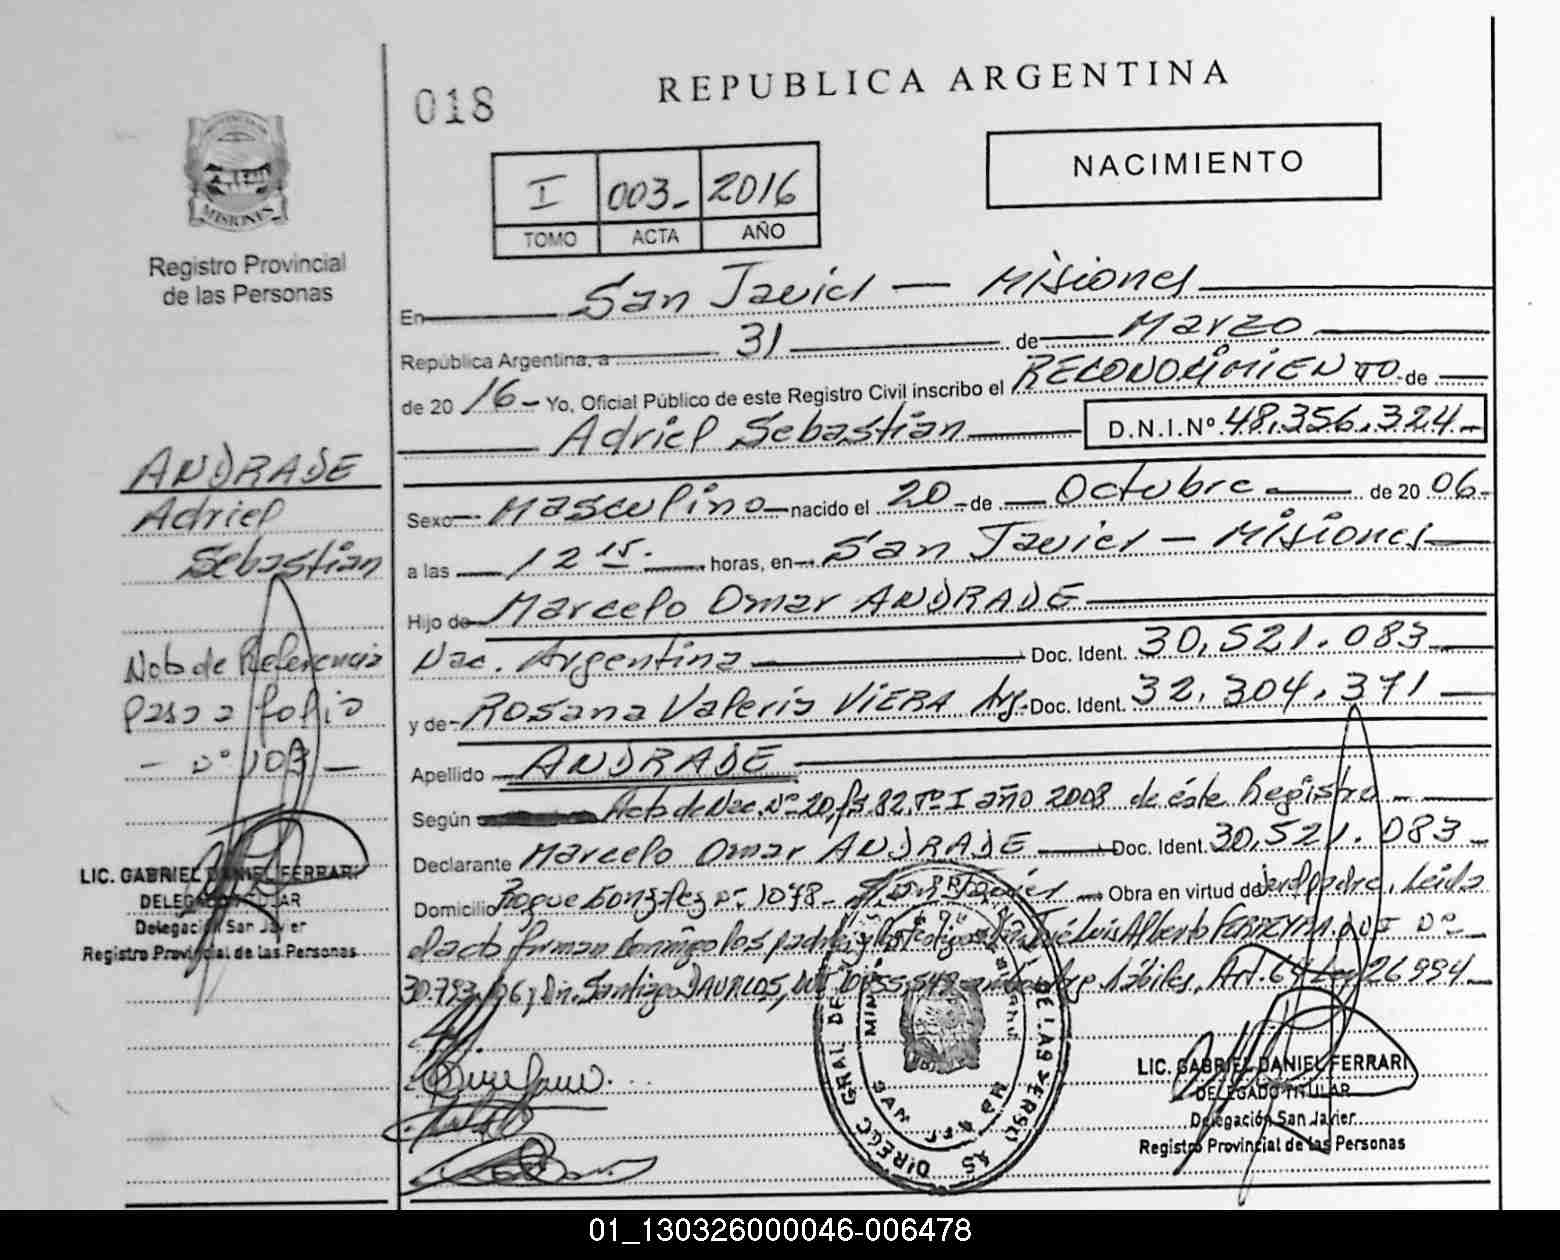 018
REPUBLICA ARGENTINA
NACIMIENTO
I 003- 2016
TOMO ACTA AÑO
MISIONES
Registro Provincial
de las Personas
En San Javier — Misiones
República Argentina, a 31 de Marzo
de 2016 - Yo, Oficial Público de este Registro Civil inscribo el RECONOCIMIENTO de
Adriel Sebastian D.N.I.Nº 48.356.324-
Sexo Masculino nacido el 20 - de Octubre de 2006-
a las 12 15. horas, en San Javier — Misiones
Hijo de Marcelo Omar ANDRADE
Nac. Argentina Doc. Ident. 30.521.083
y de Rosana Valeria VIERA Arg. Doc. Ident. 32.304.371
Apellido ANDRADE
Según Acta de Nac. Nº 20, fs. 82, Tº I año 2008 de éste Registro
Declarante Marcelo Omar ANDRADE Doc. Ident. 30.521.083
Domicilio Roque Gonzalez nº 1078 - San Javier Obra en virtud de ser el padre. Leida
el acta firman conmigo los padres y los testigos José Luis Alberto FERREYRA DNI Nº
30.793. Santiago DAVALOS, hábiles, Art. 64 Ley 26.994
ANDRADE
Adriel
Sebastian
Nota de Referencia
Pasa a folio
- nº 103 -
LIC. GABRIEL DANIEL FERRARI
DELEGADO TITULAR
Delegación San Javier
Registro Provincial de las Personas
LIC. GABRIEL DANIEL FERRARI
DELEGADO TITULAR
Delegación San Javier
Registro Provincial de las Personas
01_130326000046-006478